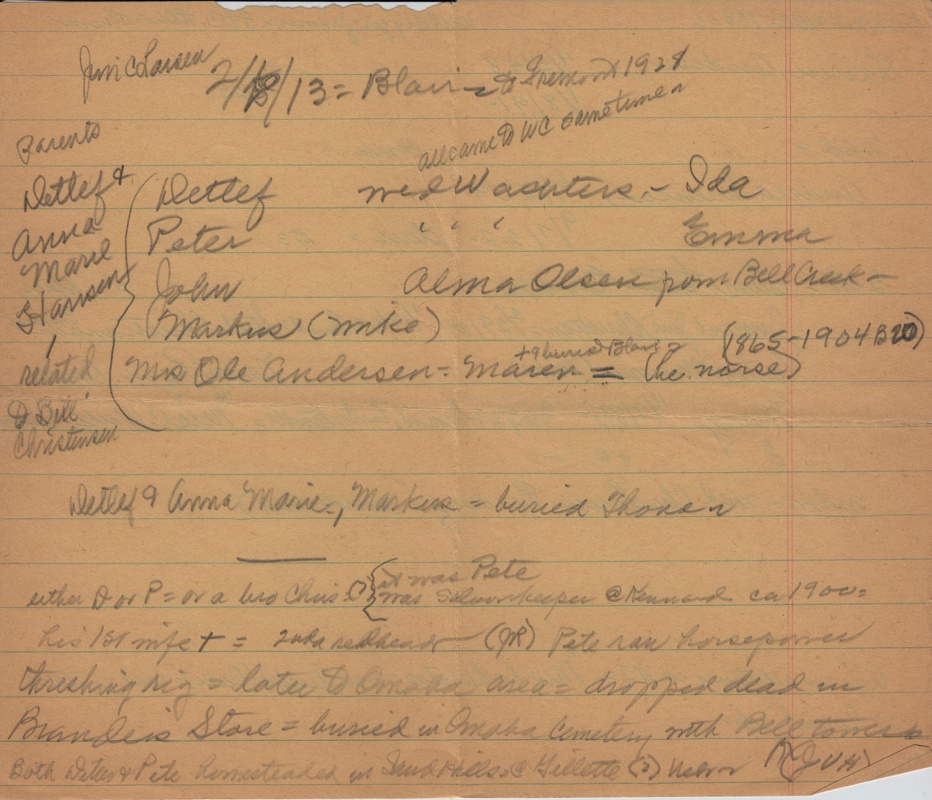 Jim C Larsen
2/18/13 = Blair - to Fremont 1928
all came to WC sometime
Parents
Detlef +
Anna
Marie
Hansen
related
to Bill
Christensen
Detlef wed Wachters. - Ida
Peter " " " Emma
John Alma Olsen from Bell Creek -
Markus (Mike)
+ 9 buried Blair (1865-1904 B20)
Mrs Ole Andersen = Maren = (he norse)
Detlef & Anna Marie -, Markus = buried
either D or P = or a bro Chris. it was Pete
was Saloonkeeper @ Kennard ca 1900 =
his 1st wife + = 2nd a redhead - Pete ran horsepower
threshing rig = later to Omaha area = dropped dead in
Brandeis Store = buried in Omaha Cemetery with Bell tower
Both Detlef & Pete homesteaded in Sand Hills @ Gillette (?) Nebr (JVH)